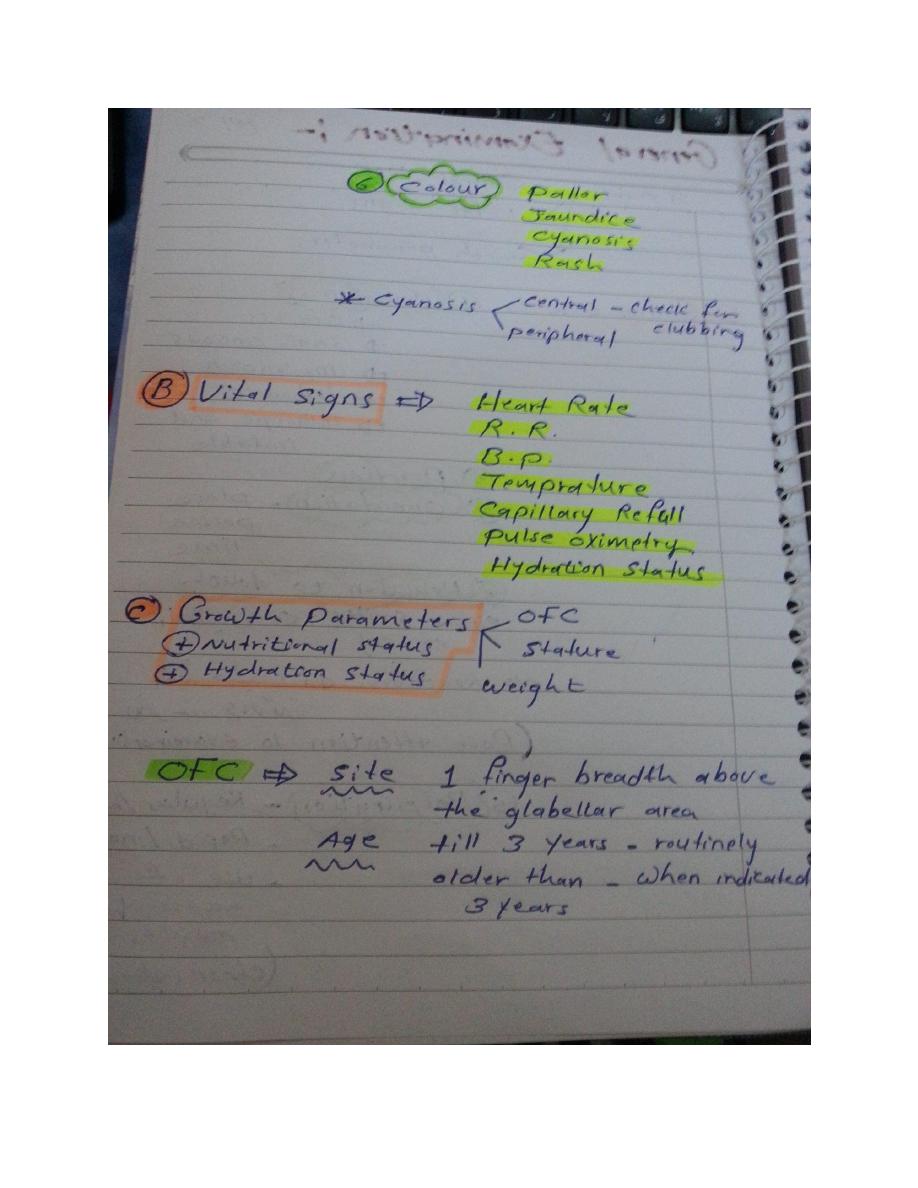 General Examination :-
6 Colour Pallor
Jaundice
Cyanosis
Rash
* Cyanosis central - check for clubbing
peripheral
B Vital Signs ⇒ Heart Rate
R.R.
B.P.
Temprature
Capillary Refull
Pulse oximetry
Hydration Status
C Growth Parameters OFC
+ Nutritional status Stature
+ Hydration Status weight
OFC ⇒ Site 1 finger breadth above
the glabellar area
Age till 3 years - routinely
older than - when indicated
3 years